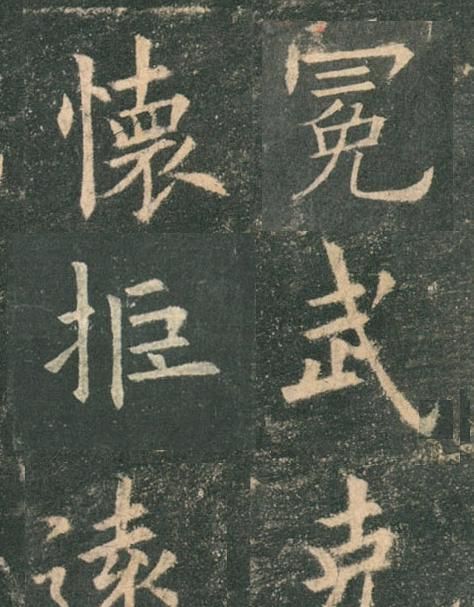 冕武克
懷拒遠